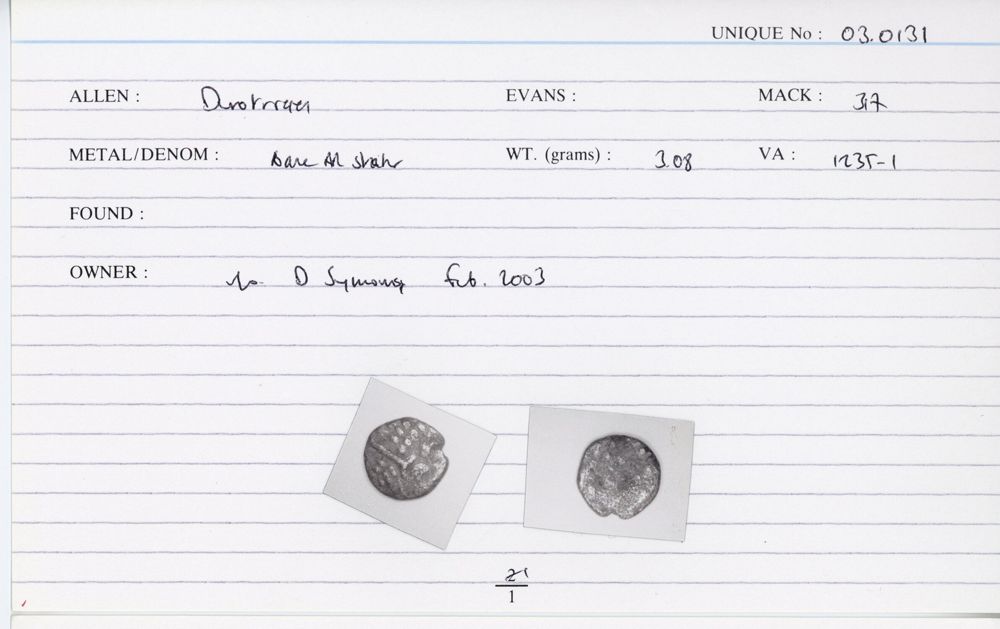 UNIQUE No : 03.0131
ALLEN : Durotriges EVANS : MACK : 317
METAL/DENOM : Base AR stater WT. (grams) : 3.08 VA : 1235-1
FOUND :
OWNER : D Symons Feb. 2003
2/1
1